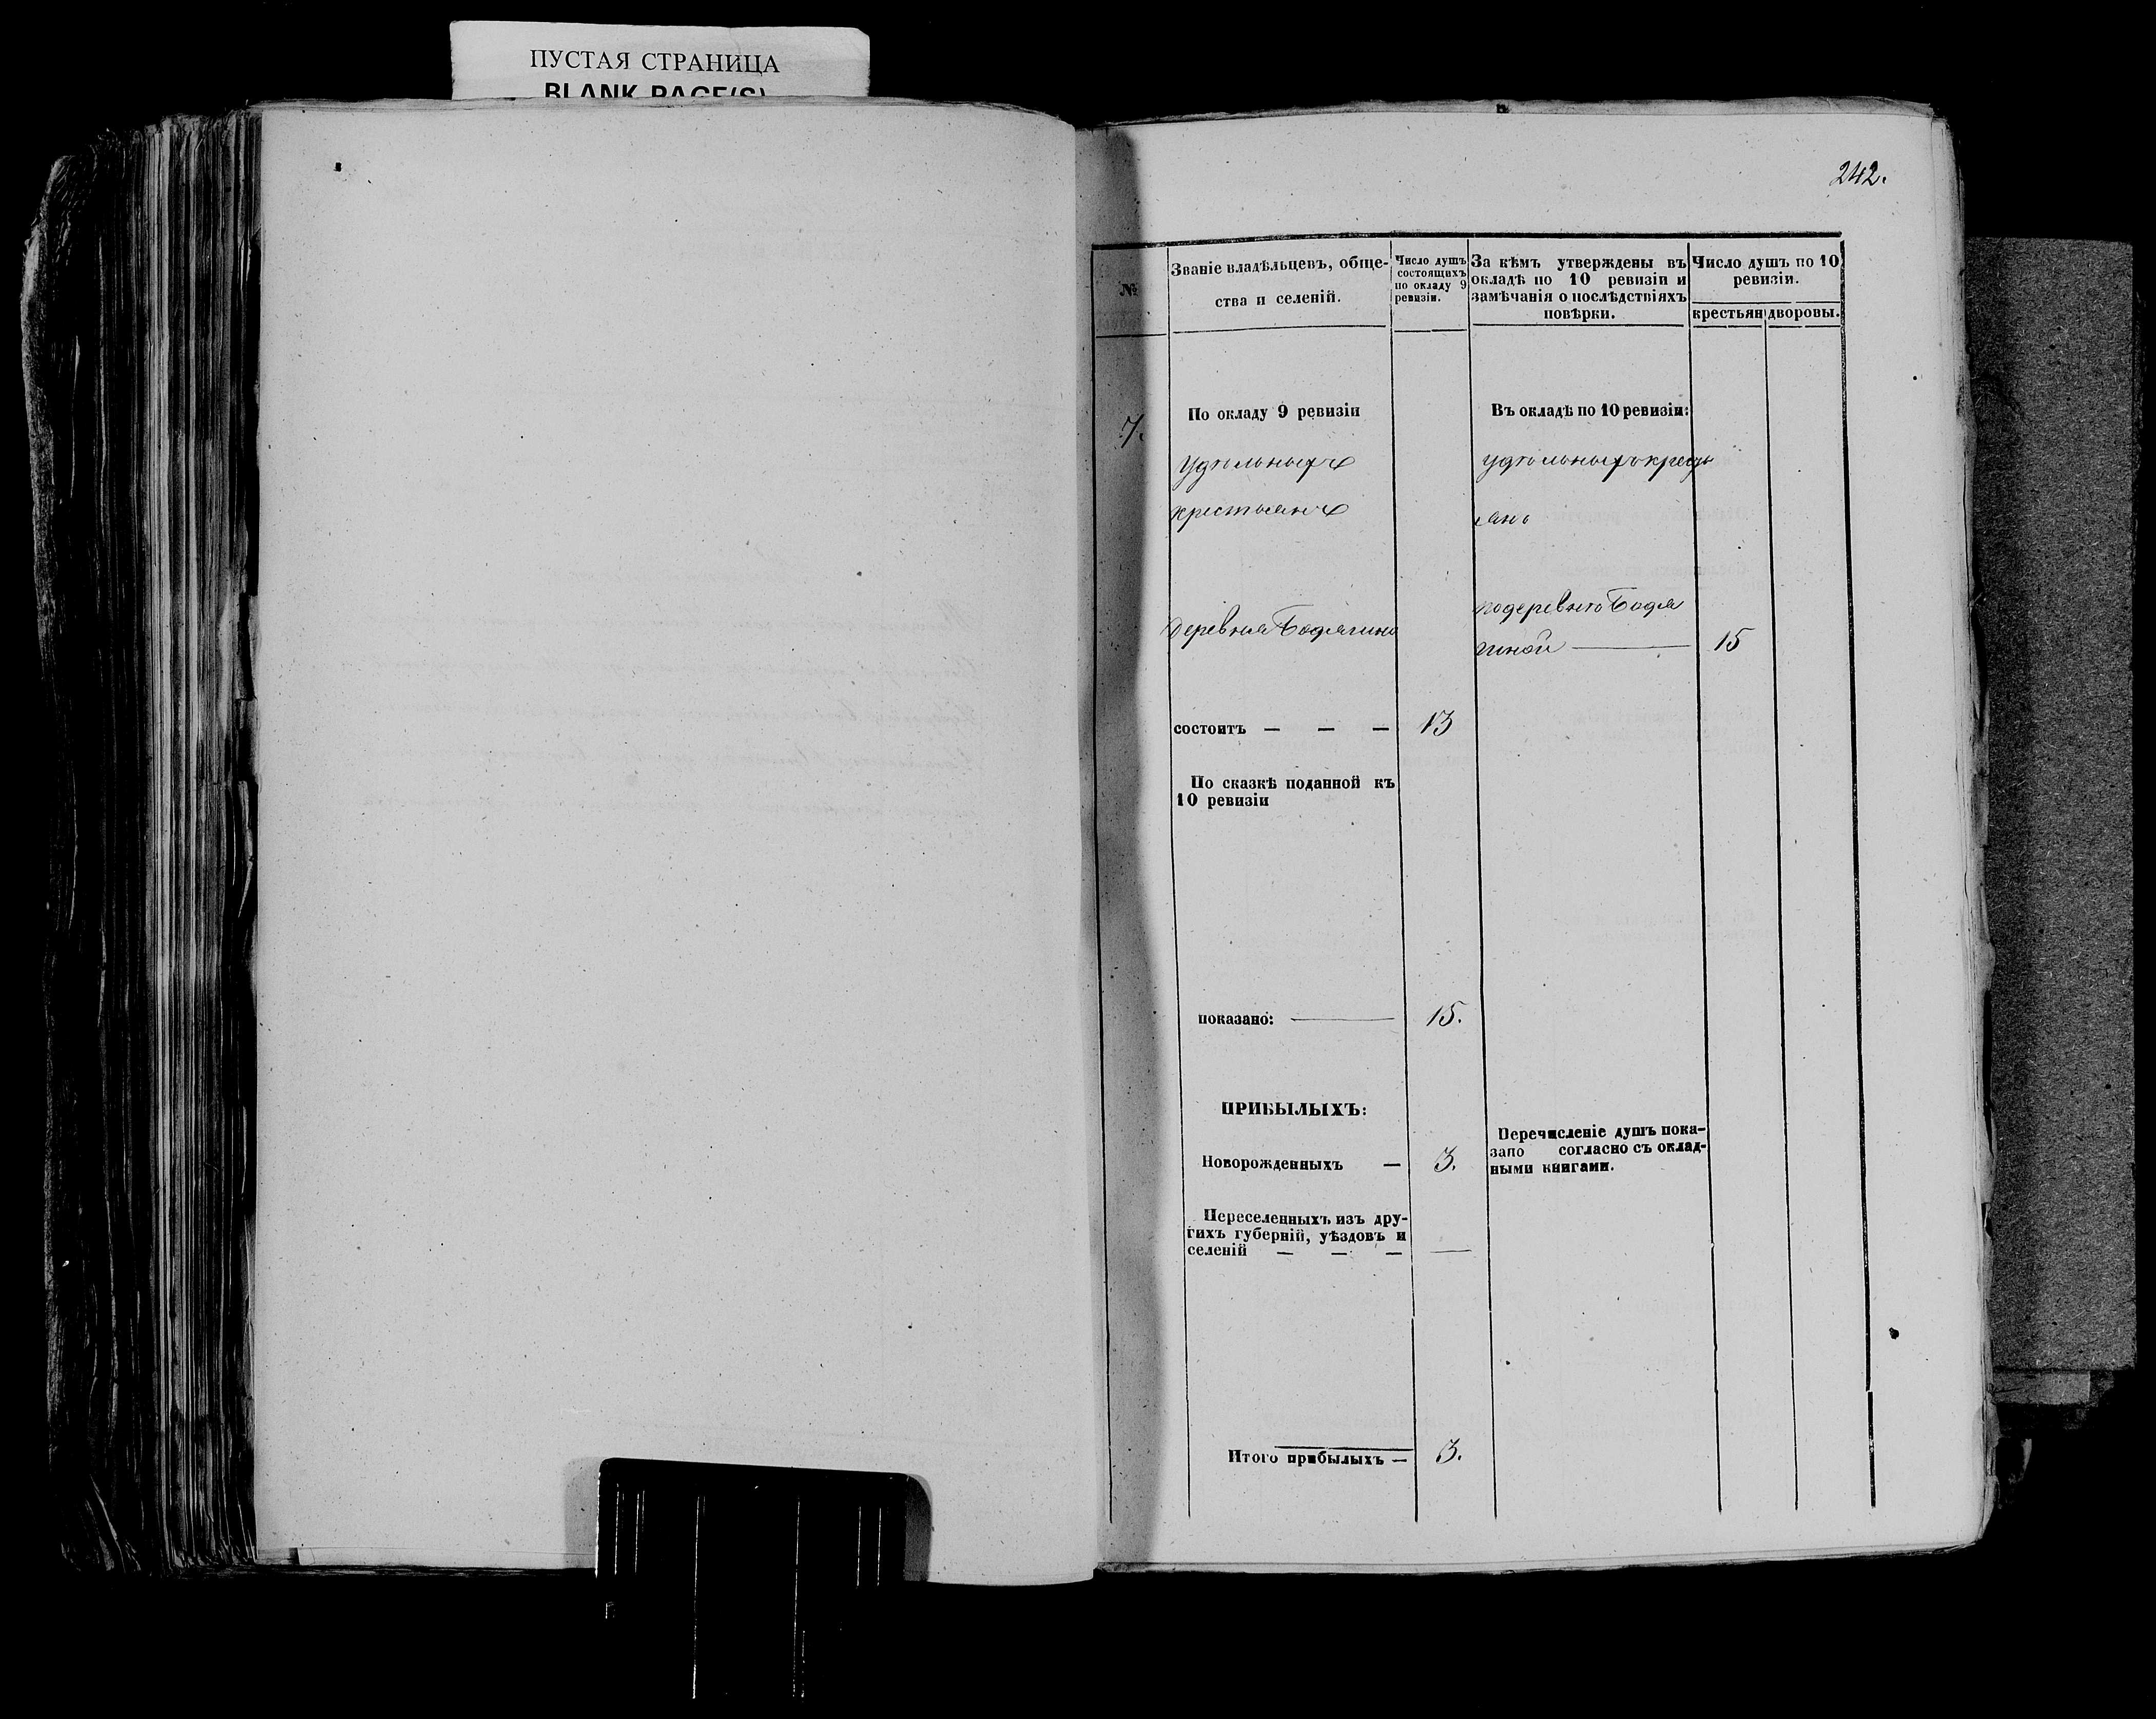 ПУСТАЯ СТРАНИЦА
BLANK PAGE(S)
242.
№
Званіе владѣльцевъ, обще-
ства и селеній.
Число душъ
состоящихъ
по окладу 9
ревизіи.
За кѣмъ утверждены въ
окладѣ по 10 ревизіи и
замѣчанія о послѣдствіяхъ
повѣрки.
Число душъ по 10
ревизіи.
крестьян
дворовы.
7.
По окладу 9 ревизіи
удѣльныхъ
крестьянъ
деревня Бодягина
состоитъ — — —
13
По сказкѣ поданной къ
10 ревизіи
показано:
15.
ПРИБЫЛЫХЪ:
Новорожденныхъ —
3.
Переселенныхъ изъ дру-
гихъ губерній, уѣздовъ и
селеній — — —
Итого прибылыхъ —
3.
Въ окладѣ по 10 ревизіи:
удѣльныхъ кресть
янъ
по деревнѣ Бодя
гиной —
15
Перечисленіе душъ пока-
зано согласно съ оклад-
ными книгами.